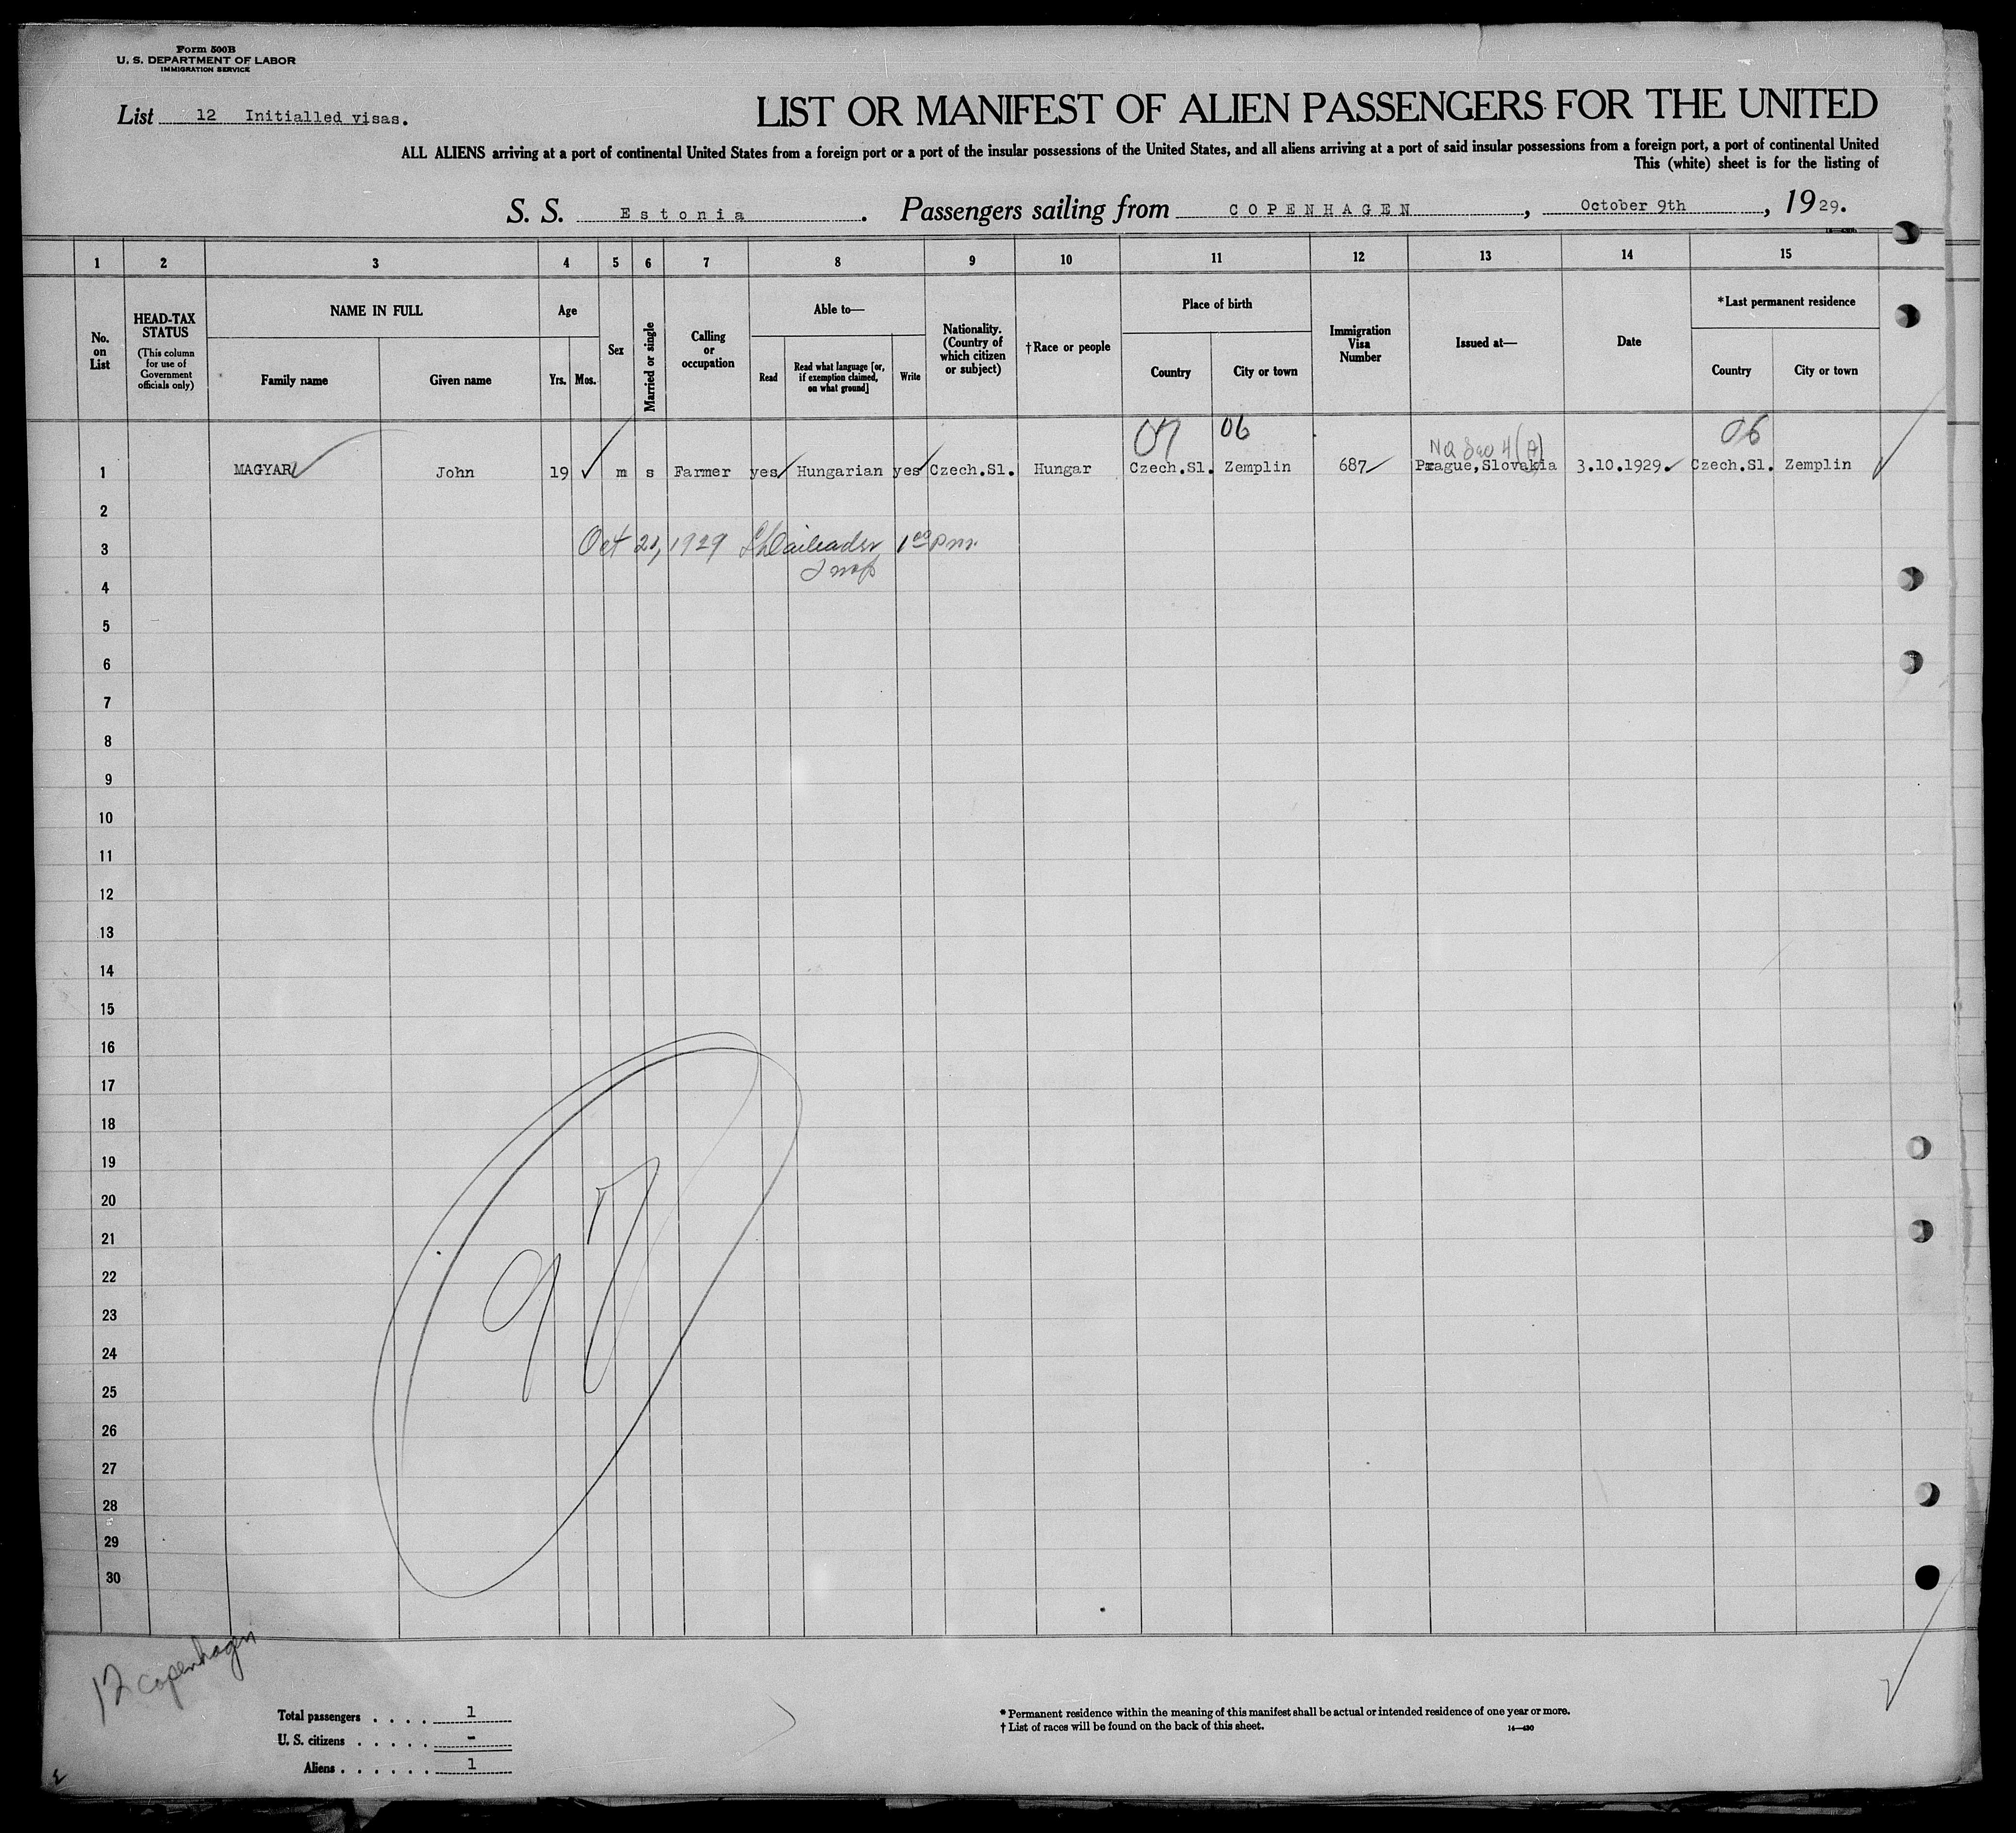 Form 500B
U. S. DEPARTMENT OF LABOR
IMMIGRATION SERVICE
List 12 Initialled visas.
LIST OR MANIFEST OF ALIEN PASSENGERS FOR THE UNITED
ALL ALIENS arriving at a port of continental United States from a foreign port or a port of the insular possessions of the United States, and all aliens arriving at a port of said insular possessions from a foreign port, a port of continental United
This (white) sheet is for the listing of
S. S. Estonia. Passengers sailing from COPENHAGEN, October 9th, 1929.
1 2 3 4 5 6 7 8 9 10 11 12 13 14 15
No. on List
HEAD-TAX STATUS
(This column for use of Government officials only)
NAME IN FULL
Family name
Given name
Age
Yrs. Mos.
Sex
Married or single
Calling or occupation
Able to—
Read
Read what language [or, if exemption claimed, on what ground]
Write
Nationality. (Country of which citizen or subject)
†Race or people
Place of birth
Country
City or town
Immigration Visa Number
Issued at—
Date
*Last permanent residence
Country
City or town
07 06 06
1 MAGYAR John 19 m s Farmer yes Hungarian yes Czech.Sl. Hungar Czech.Sl. Zemplin 687 Prague,Slovakia 3.10.1929. Czech.Sl. Zemplin
2
3 Oct 21, 1929 1 00 pm.
Insp
4
5
6
7
8
9
10
11
12
13
14
15
16
17
18
19
20
21
22
23
24
25
26
27
28
29
30
97
12 Copenhagen
Total passengers . . . . 1
U. S. citizens . . . . . -
Aliens . . . . . . 1
* Permanent residence within the meaning of this manifest shall be actual or intended residence of one year or more.
† List of races will be found on the back of this sheet.
14—430